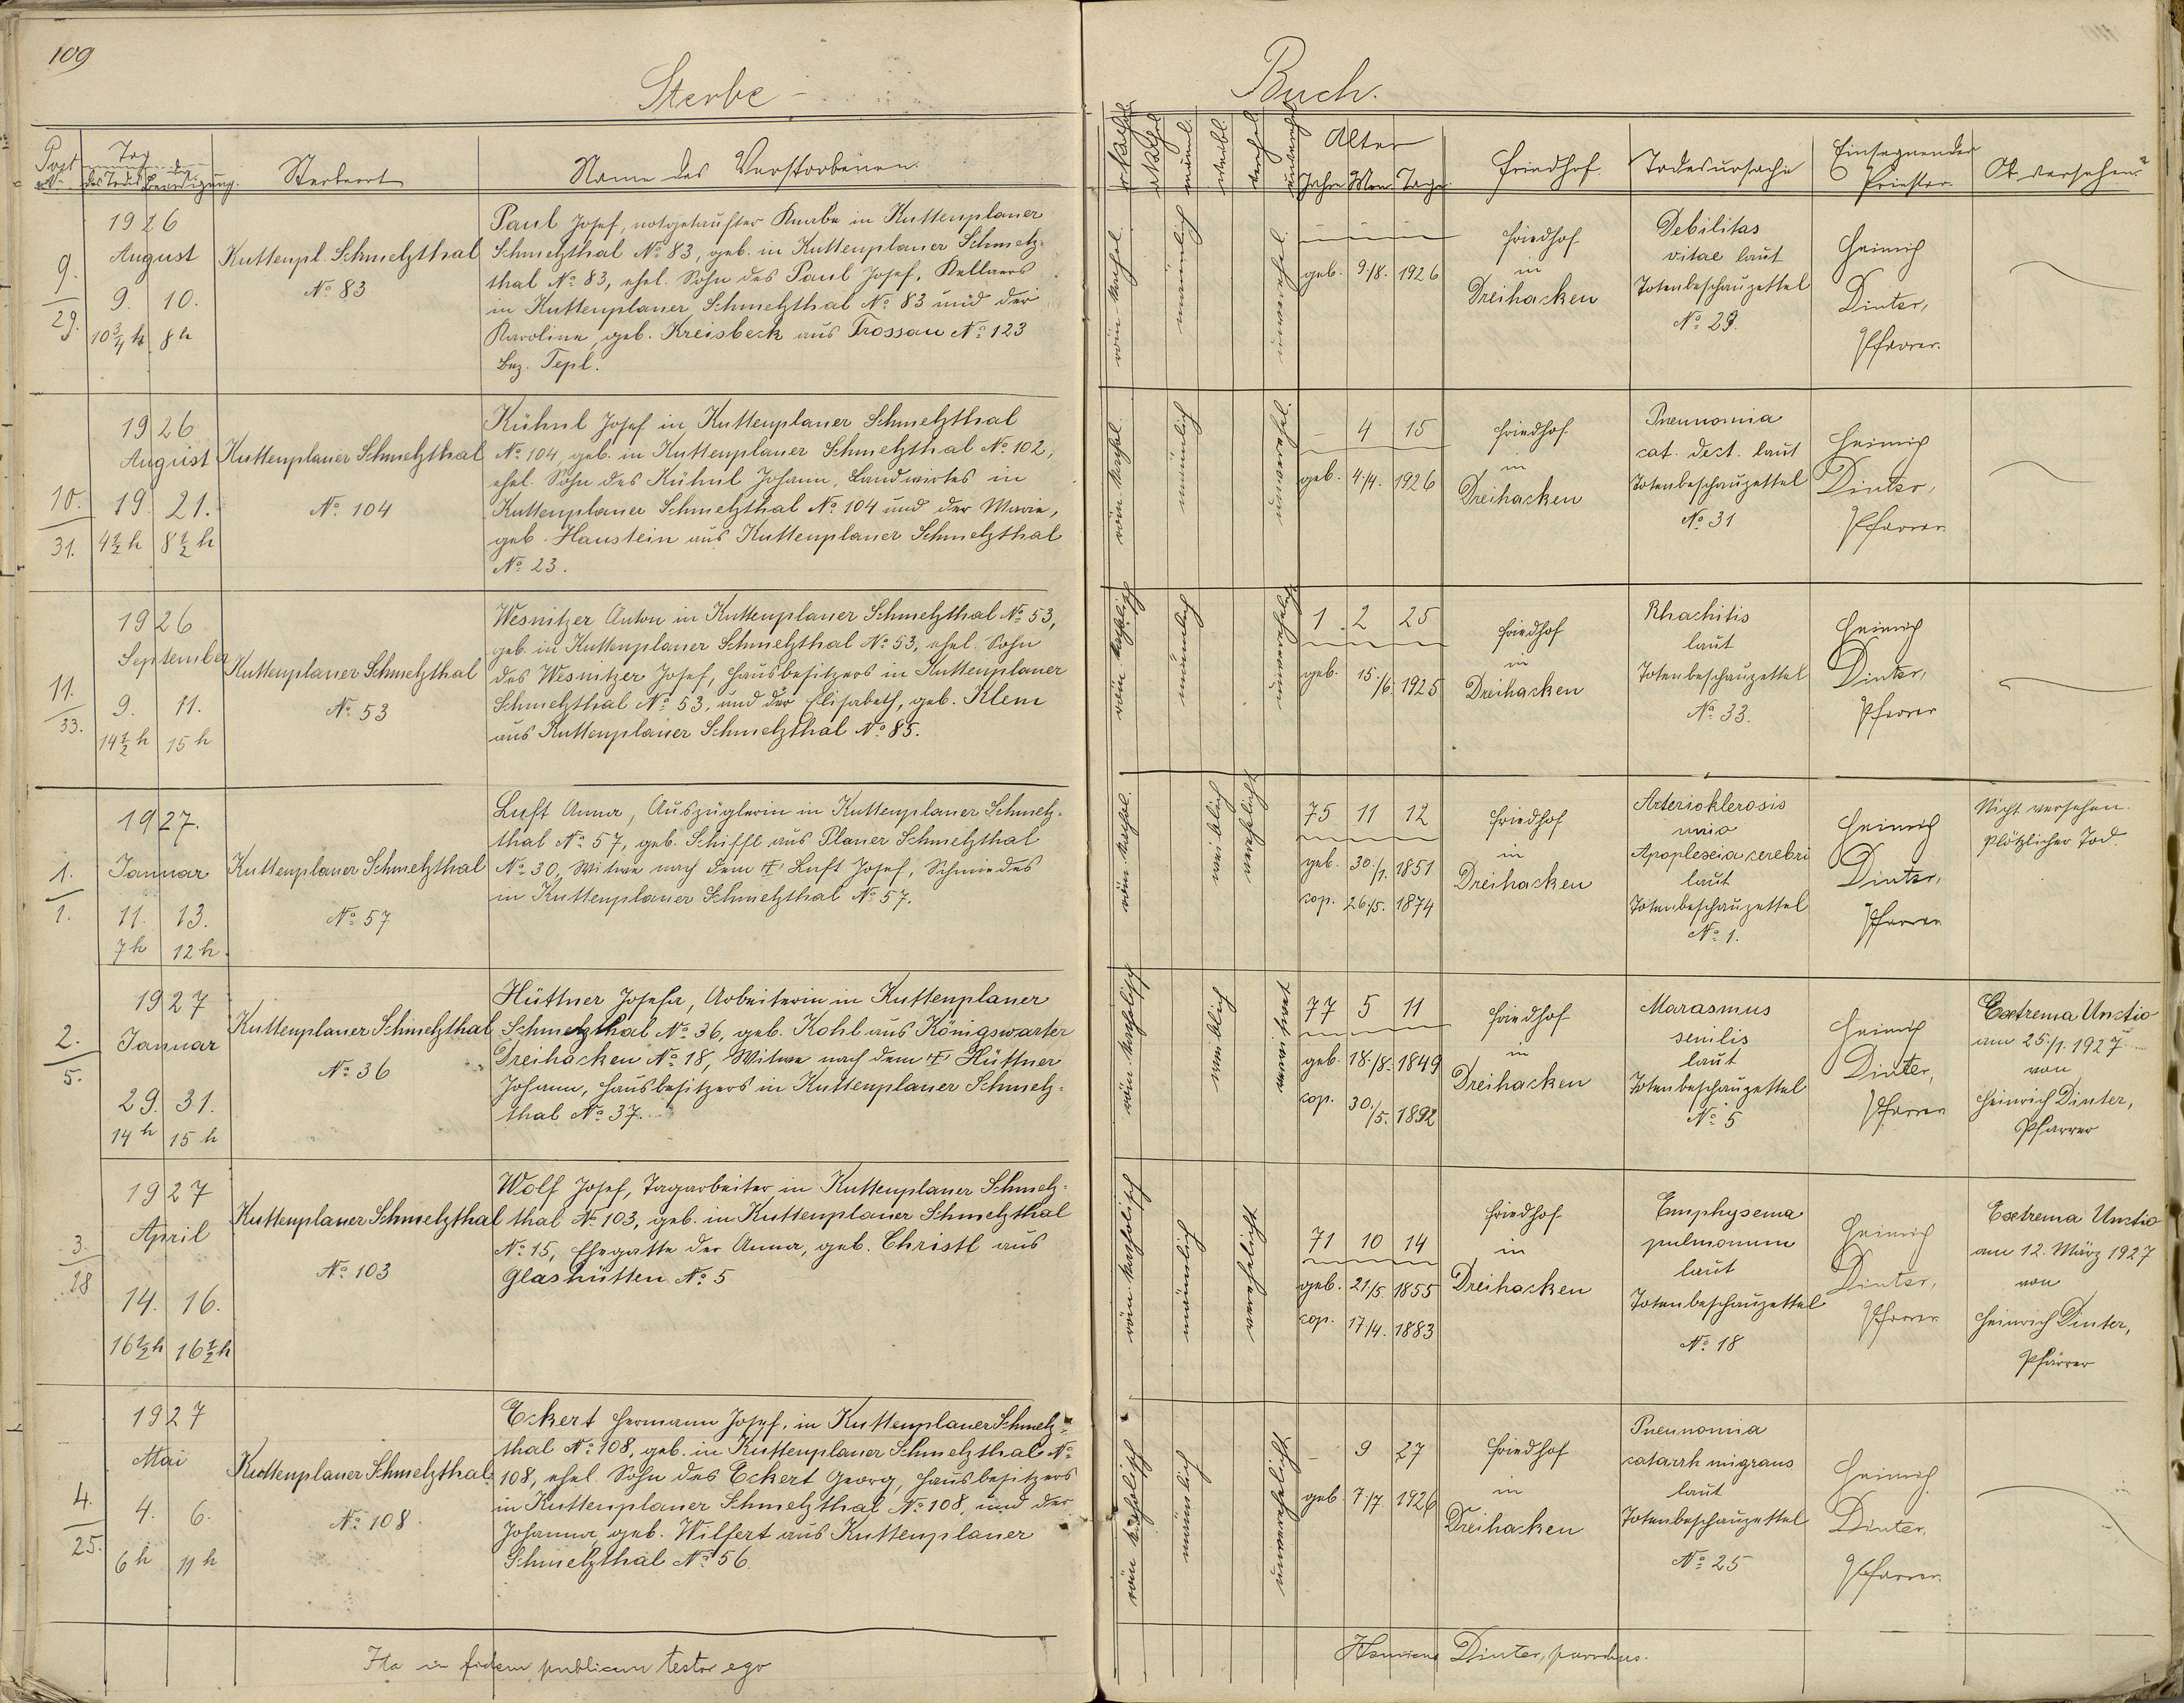 109
Sterbe-
Buch.
Post No. | Tag des Todes | der Beerdigung. | Sterbeort | Name des Verstorbenen. | männl. | weibl. | Alter | Jahre | Mon. | Tage | Friedhof | Todesursache | Einsegnender Priester. | Ob versehen?
9. / 29.
1926
August
9. 10.
10 3/4 h 8 h
Kuttenpl. Schmelzthal
No 83
Paul Josef, notgetaufter Knabe in Kuttenplaner
Schmelzthal No 83, geb. in Kuttenplaner Schmelz-
thal No 83, ehel. Sohn des Paul Josef, Kellners
in Kuttenplaner Schmelzthal No 83 und der
Karoline, geb. Kreisbeck aus Trossau No 123
Bez. Tepl.
röm-kathol.
männlich
unverehel.
geb. 9./8. 1926
Friedhof
in
Dreihacken
Debilitas
vitae laut
Totenbeschauzettel
No 29.
Heinrich
Dinter,
Pfarrer.
10. / 31.
1926
August
19. 21.
4 1/2 h 8 1/2 h
Kuttenplaner Schmelzthal
No 104
Kühnl Josef in Kuttenplaner Schmelzthal
No 104, geb. in Kuttenplaner Schmelzthal No 102,
ehel. Sohn des Kühnl Johann, Landwirtes in
Kuttenplaner Schmelzthal No 104 und der Marie,
geb. Haustein aus Kuttenplaner Schmelzthal
No 23.
röm. kathol.
männlich
unverehel.
– 4 15
geb. 4/4. 1926
Friedhof
in
Dreihacken
Pneumonia
cat. dect. laut
Totenbeschauzettel
No 31
Heinrich
Dinter,
Pfarrer
11. / 33.
1926
September
9. 11.
14 1/2 h 15 h
Kuttenplaner Schmelzthal
No 53
Wesnitzer Anton in Kuttenplaner Schmelzthal No 53,
geb. in Kuttenplaner Schmelzthal No 53, ehel. Sohn
des Wesnitzer Josef, Hausbesitzers in Kuttenplaner
Schmelzthal No 53, und der Elisabeth, geb. Klem
aus Kuttenplaner Schmelzthal No 85.
röm. katholisch
männlich
unverehelicht
1 2 25
geb. 15./6. 1925
Friedhof
in
Dreihacken
Rhachitis
laut
Totenbeschauzettel
No 33.
Heinrich
Dinter,
Pfarrer
1. / 1.
1927.
Januar
11. 13.
7 h 12 h.
Kuttenplaner Schmelzthal
No 57
Luft Anna, Auszüglerin in Kuttenplaner Schmelz-
thal No 57, geb. Schiffl aus Planer Schmelzthal
No 30, Witwe nach dem ✝ Luft Josef, Schmiedes
in Kuttenplaner Schmelzthal No 57.
röm. kathol.
weiblich
verehelicht
75 11 12
geb. 30./1. 1851
cop. 26./5. 1874
Friedhof
in
Dreihacken
Arterioklerosis
Apoplexia cerebri
laut
Totenbeschauzettel
No 1.
Heinrich
Dinter,
Pfarrer
Nicht versehen.
Plötzlicher Tod.
2. / 5.
1927
Januar
29. 31.
14 h 15 h
Kuttenplaner Schmelzthal
No 36
Hüttner Josefa, Arbeiterin in Kuttenplaner
Schmelzthal No 36, geb. Kohl aus Königswarter
Dreihacken No 18, Witwe nach dem ✝ Hüttner
Johann, Hausbesitzers in Kuttenplaner Schmelz-
thal No 37.
röm. katholisch
weiblich
verwitwet
77 5 11
geb. 18./8. 1849
cop. 30./5. 1892
Friedhof
in
Dreihacken
Marasmus
senilis
laut
Totenbeschauzettel
No 5
Heinrich
Dinter,
Pfarrer
Extrema Unctio
am 25./1. 1927
von
Heinrich Dinter,
Pfarrer
3. / 18
1927
April
14. 16.
16 1/2 h 16 1/2 h
Kuttenplaner Schmelzthal
No 103
Wolf Josef, Tagarbeiter in Kuttenplaner Schmelz-
thal No 103, geb. in Kuttenplaner Schmelzthal
No 15, Ehegatte der Anna, geb. Christl aus
Glashütten No 5
röm. katholisch
männlich
verehelicht
71 10 14
geb. 21/5. 1855
cop. 17/4. 1883
Friedhof
in
Dreihacken
Emphysema
pulmonum
laut
Totenbeschauzettel
No 18
Heinrich
Dinter,
Pfarrer
Extrema Unctio
am 12. März 1927
von
Heinrich Dinter,
Pfarrer
4. / 25.
1927
Mai
4. 6.
6 h 11 h
Kuttenplaner Schmelzthal
No 108
Eckert Hermann Josef, in Kuttenplaner Schmelz-
thal No 108, geb. in Kuttenplaner Schmelzthal No
108, ehel. Sohn des Eckert Georg, Hausbesitzers
in Kuttenplaner Schmelzthal No 108, und der
Johanna, geb. Wilfert aus Kuttenplaner
Schmelzthal No 56.
röm katholisch
männlich
unverehelicht
– 9 27
geb 7/7 1926
Friedhof
in
Dreihacken
Pneumonia
catarrh migrans
laut
Totenbeschauzettel
No 25
Heinrich
Dinter,
Pfarrer.
Ita in fidem publicam testor ego
Henricus Dinter, parochus.